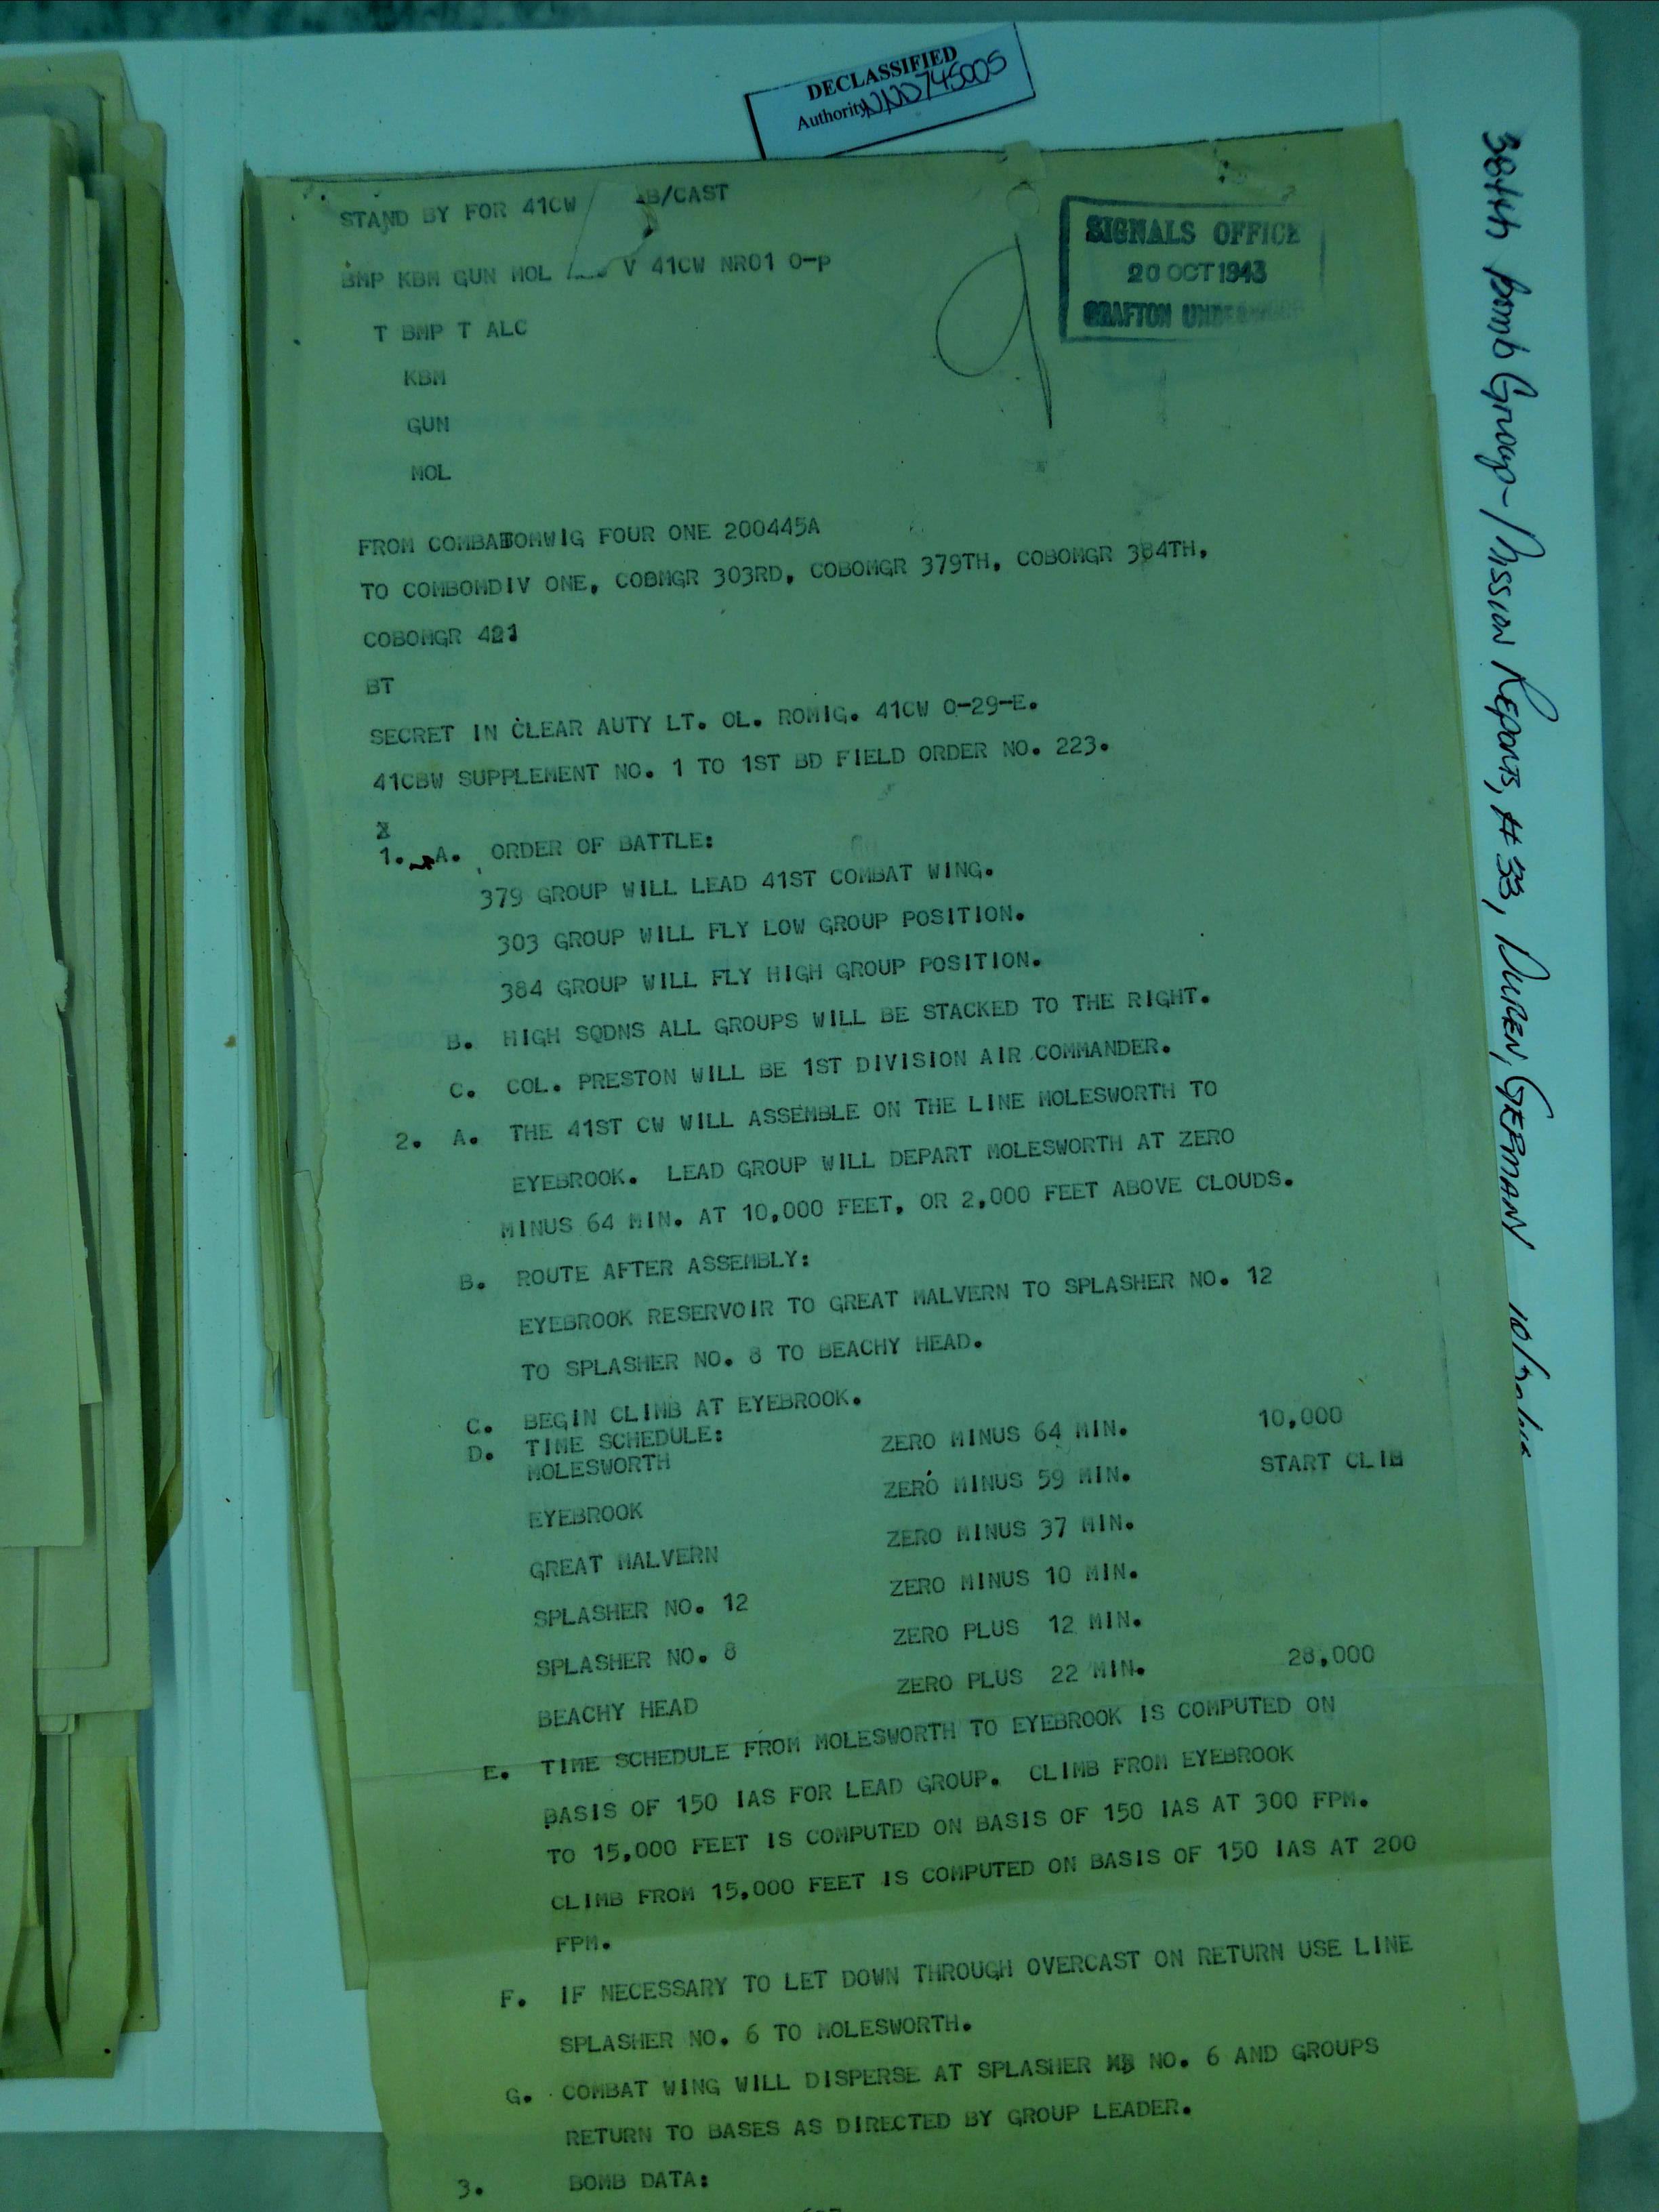 DECLASSIFIED
Authority NND745005
STAND BY FOR 41CW B/CAST
SIGNALS OFFICE
20 OCT 1943
GRAFTON
BMP KBM GUN MOL V 41CW NR01 O-P
T BMP T ALC
KBM
GUN
MOL
FROM FOUR ONE 200445A
TO COMBOMDIV ONE, COBMGR 303RD, COBOMGR 379TH, COBOMGR 384TH,
COBOMGR
BT
SECRET IN CLEAR AUTY LT. OL. ROMIG. 41CW O-29-E.
41CBW SUPPLEMENT NO. 1 TO 1ST BD FIELD ORDER NO. 223.
1. A. ORDER OF BATTLE:
379 GROUP WILL LEAD 41ST COMBAT WING.
303 GROUP WILL FLY LOW GROUP POSITION.
384 GROUP WILL FLY HIGH GROUP POSITION.
B. HIGH SQDNS ALL GROUPS WILL BE STACKED TO THE RIGHT.
C. COL. PRESTON WILL BE 1ST DIVISION AIR COMMANDER.
2. A. THE 41ST CW WILL ASSEMBLE ON THE LINE MOLESWORTH TO
EYEBROOK. LEAD GROUP WILL DEPART MOLESWORTH AT ZERO
MINUS 64 MIN. AT 10,000 FEET, OR 2,000 FEET ABOVE CLOUDS.
B. ROUTE AFTER ASSEMBLY:
EYEBROOK RESERVOIR TO GREAT MALVERN TO SPLASHER NO. 12
TO SPLASHER NO. 8 TO BEACHY HEAD.
C. BEGIN CLIMB AT EYEBROOK.
D. TIME SCHEDULE:
MOLESWORTH ZERO MINUS 64 MIN. 10,000
EYEBROOK ZERO MINUS 59 MIN. START CLIM
GREAT MALVERN ZERO MINUS 37 MIN.
SPLASHER NO. 12 ZERO MINUS 10 MIN.
SPLASHER NO. 8 ZERO PLUS 12 MIN.
BEACHY HEAD ZERO PLUS 22 MIN. 28,000
E. TIME SCHEDULE FROM MOLESWORTH TO EYEBROOK IS COMPUTED ON
BASIS OF 150 IAS FOR LEAD GROUP. CLIMB FROM EYEBROOK
TO 15,000 FEET IS COMPUTED ON BASIS OF 150 IAS AT 300 FPM.
CLIMB FROM 15,000 FEET IS COMPUTED ON BASIS OF 150 IAS AT 200
FPM.
F. IF NECESSARY TO LET DOWN THROUGH OVERCAST ON RETURN USE LINE
SPLASHER NO. 6 TO MOLESWORTH.
G. COMBAT WING WILL DISPERSE AT SPLASHER NO. 6 AND GROUPS
RETURN TO BASES AS DIRECTED BY GROUP LEADER.
3. BOMB DATA:
384th Bomb Group - Mission Reports, #33, Duren, GERMANY